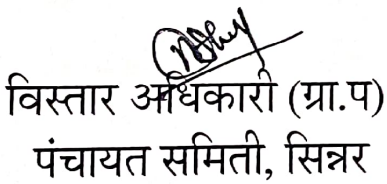 विस्तार अधिकारी (ग्रा.प)
पंचायत समिती, सिन्नर